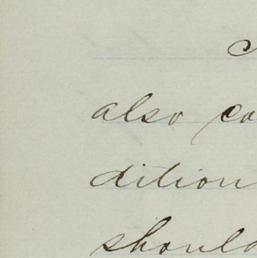 also co
dition
should